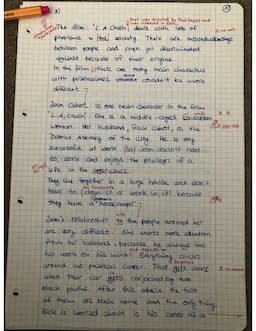 that was directed by Paul Haggis and
was released in 2004,
The film "L.A. Crash" deals with lots of
problems in society. There are misunderstandings
between people and people get discriminated
against because of their origins.
In the film there are many main characters
with personalities which couldn't be more
different.
Jean Cabot is one main character in the film
"L.A. Crash". She is a middle-aged
woman. Her husband, Rick Cabot, is the
District Attorney of the city. He is very
successful at work so Jean doesn't need
to work and enjoys the privileges of a
life in the
They live together in a huge house and don't
have to clean it or work in it because
they have a "housekeeper".
Jean's relationships to the people around her
are very difficult. She wants more attention
from her husband, because he always has
his work on his mind. Everything circles
around his political career. That gets
when their car gets carjacked by two
black youths. After this attack the two
of them are back home and the only thing
Rick is worried about is his career as a